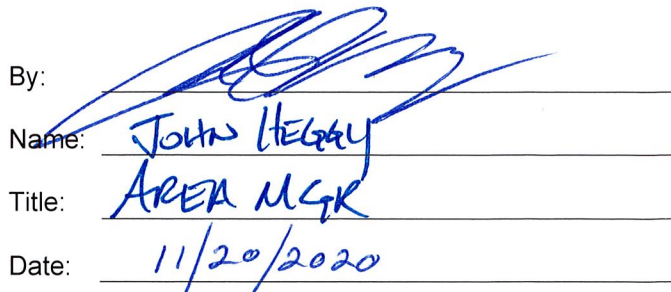 By:
Name: JOHN HEGGY
Title: AREA MGR
Date: 11/20/2020